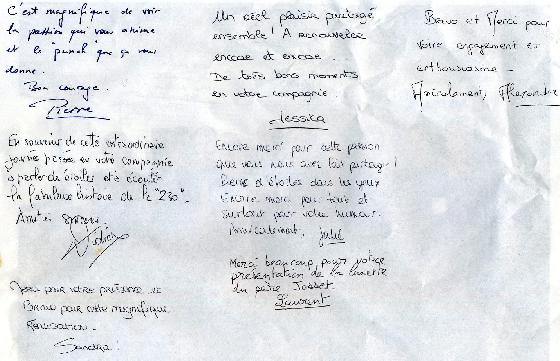 C'est magnifique de voir
la passion qui vous anime
et le punch que ça vous
donne.
Bon courage.
Pierre
En souvenir de cette extraordinaire
journée passée en votre compagnie
à parler d'étoiles et à écouter
la fabuleuse histoire de la "230".
Amitiés
Merci pour votre
Bravo pour cette magnifique
Réalisation.
Sandra.
Un réel plaisir partagé
ensemble! A renouveler
encore et encore.
De très bons moments
en votre compagnie.
Jessika
Encore merci pour cette passion
que vous nous avez fait partager!
d'étoiles dans les yeux
Encore merci pour tout et
surtout pour votre humour.
Amicalement, Julie
Merci beaucoup pour votre
présentation de la lunette
du père Josset
Laurent
Bravo et Merci pour
votre engagement et
enthousiasme
Amicalement,